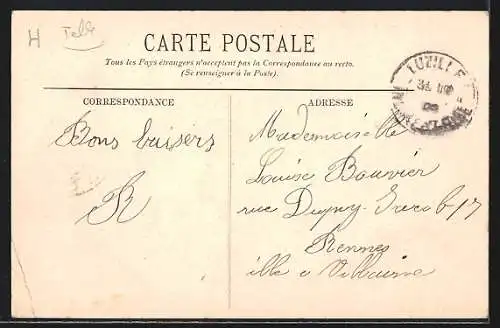 H
CARTE POSTALE
Tous les Pays étrangers n'acceptent pas la Correspondance au recto.
(Se renseigner à la Poste).
LUZILLÉ
CORRESPONDANCE
Bons baisers
R
ADRESSE
Mademoiselle
Louise Bouvier
rue Dupuy-Jacob 17
Rennes
ille & Villaine